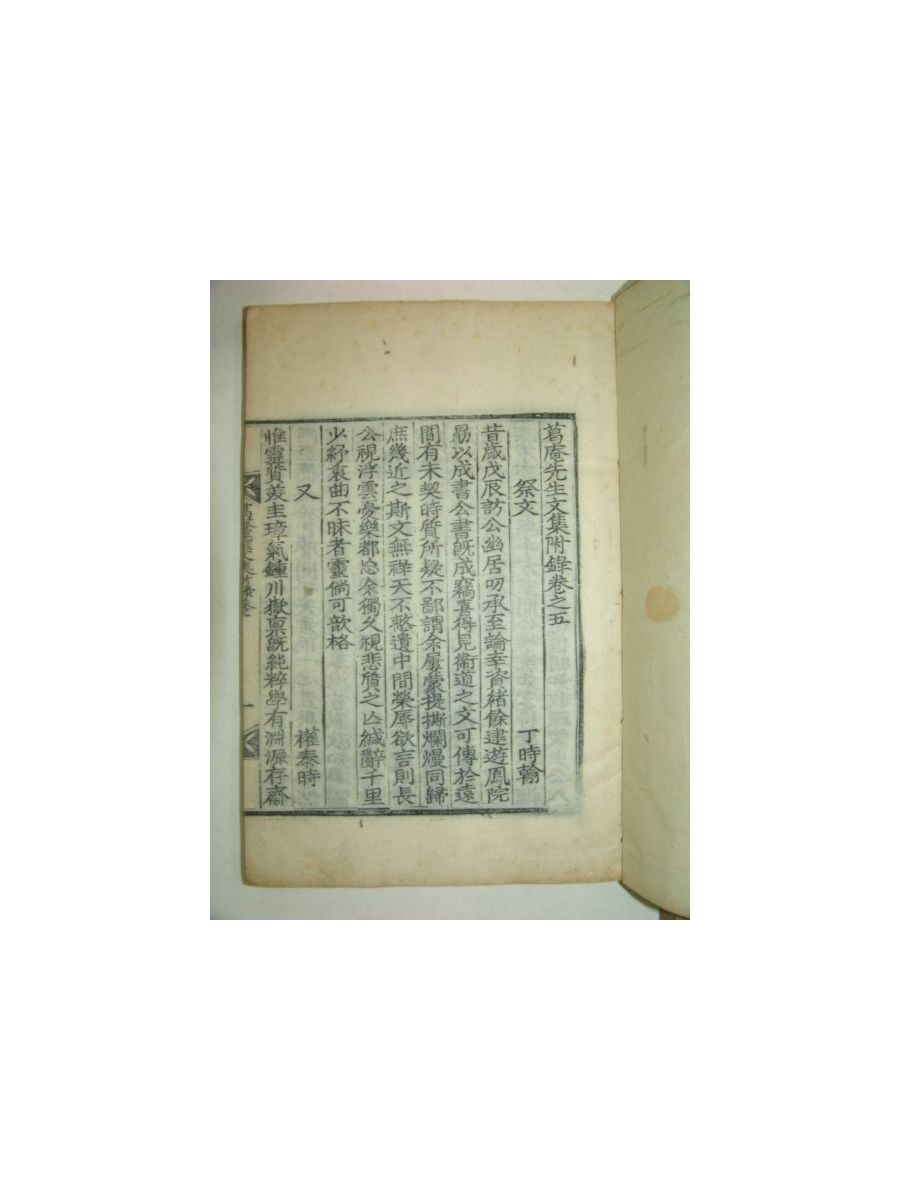 葛庵先生文集附錄卷之五
祭文 丁時翰
昔歲戊辰訪公幽居叨承至論幸資緖餘逮遊鳳院
勗以成書公書旣成竊喜得見衛道之文可傳於遠
間有未契時質所疑不鄙謂余屢蒙提撕爛熳同歸
庶幾近之斯文無祥天不憖遺中間榮辱欲言則長
公視浮雲憂樂都忘余獨久視悲質之亡緘辭千里
少紓哀曲不昧者靈倘可歆格
又 權泰時
惟靈質羙圭璋氣鍾川嶽稟旣純粹學有淵源存齋